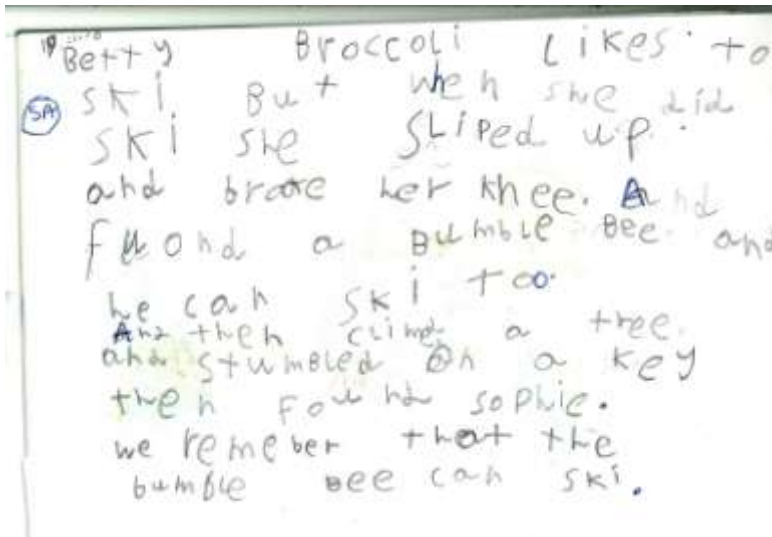 Betty Broccoli Likes to
SA
SKi But when she did
SKi she SLiped up.
and broke her Knee. And
fuond a Bumble Bee and
he can SKi too.
And then climed a tree.
and stumbled On a Key
then Found sophie.
we remember that the
bumble Bee can SKi.